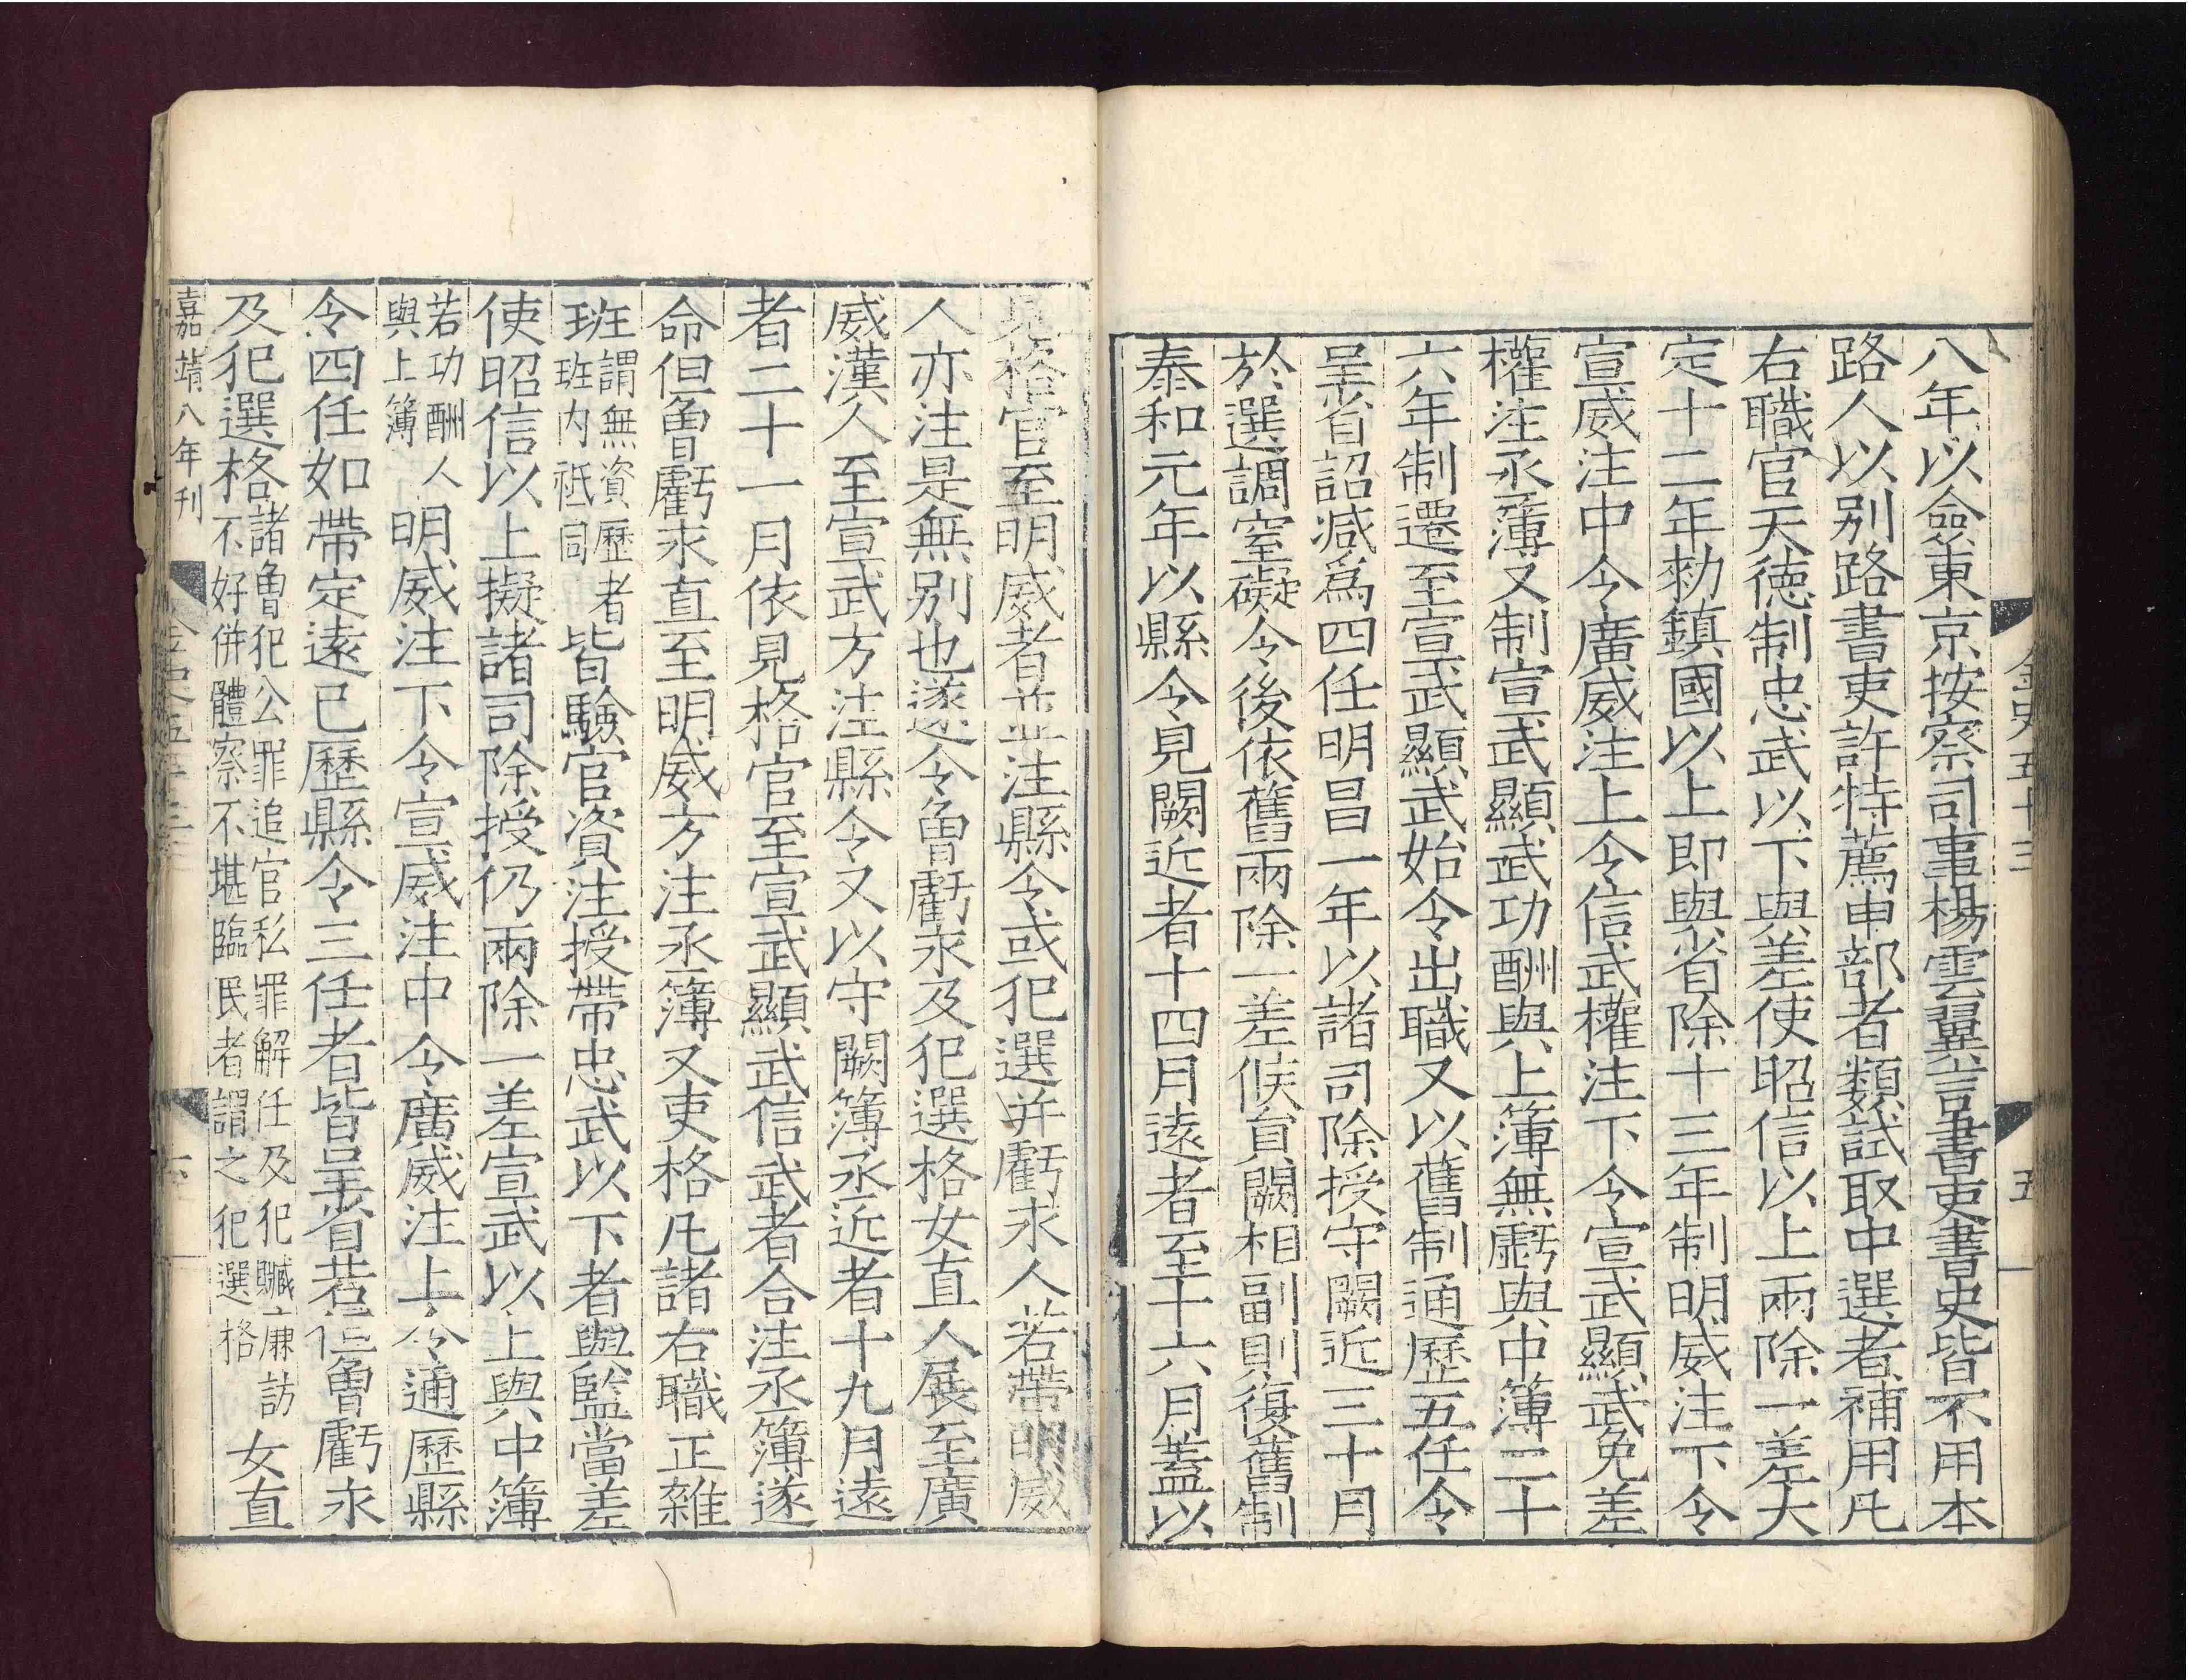 金史五十三
五
八年以僉東京按察司事楊雲翼言書吏書史皆不用本
路人以别路書吏許特薦申部者類試取中選者補用凡
右職官天德制忠武以下與差使昭信以上兩除一差大
定十二年勑鎮國以上即與省除十三年制明威注下令
宣威注中令廣威注上令信武權注下令宣武顯武免差
權注丞簿又制宣武顯武功酬與上簿無虧與中簿二十
六年制遷至宣武顯武始令出職又以舊制通歷五任令
呈省詔減爲四任明昌一年以諸司除授守闕近三十月
於選調窒礙今後依舊兩除一差候員闕相副則復舊制
泰和元年以縣令見闕近者十四月遠者至十六月蓋以
見格官至明威者並注縣令或犯選并虧永人若帶明威
人亦注是無别也遂令曾虧永及犯選格女直人展至廣
威漢人至宣武方注縣令又以守闕簿丞近者十九月遠
者二十一月依見格官至宣武顯武信武者合注丞簿遂
命但曾虧永直至明威方注丞簿又吏格凡諸右職正雜
班謂無資歷者班内祗同皆驗官資注授帶忠武以下者與監當差
使昭信以上擬諸司除授仍兩除一差宣武以上與中簿
若功酬人與上簿明威注下令宣威注中令廣威注上令通歷縣
令四任如帶定遠已歷縣令三任者皆呈省若但曾虧永
及犯選格諸曾犯公罪追官私罪解任及犯贓廉訪不好併體察不堪臨民者謂之犯選格女直
嘉靖八年刊